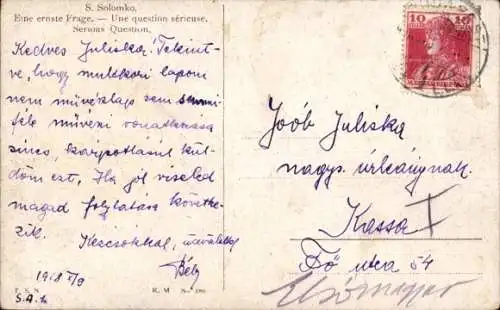 S. Solomko.
Eine ernste Frage. — Une question sérieuse.
Serious Question.
Kedves Juliska! Tekint-
ve, hogy multkori lapom
nem művészlap s sem
féle művéni vonatkozása
nincs, kárpótlásul kül-
döm ezt. Ha jól viseled
magad folytatása követke-
zik.
Kézcsókkal, üdvözlettel
Béla
1918 V/9
T. S. N.
R. M
10
10
Joób Juliska
nagys. úrleánynak.
Kassa I
Fő utca 54